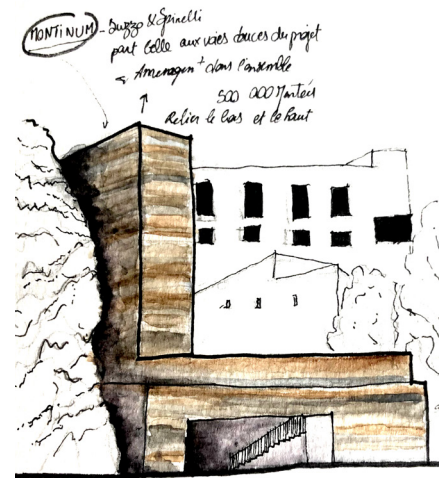 MONTINUM - Buzzo & Spinelli
part belle aux voies douces du projet
Amenagent + dans l'ensemble
500 000 Montées
Relier le bas et le haut